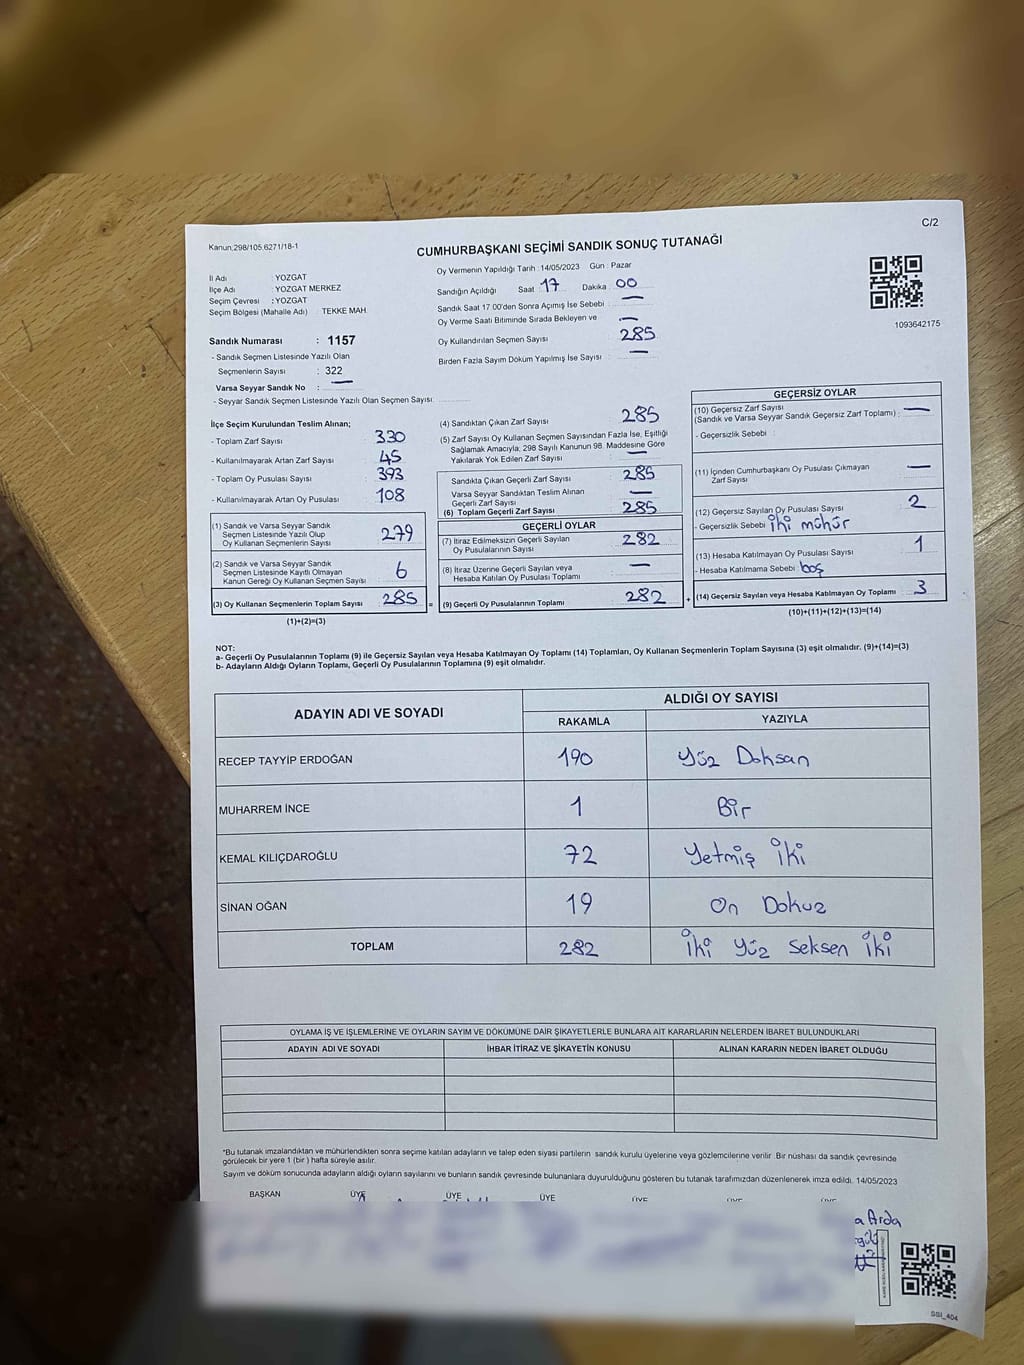 C/2
Kanun;298/105.6271/18-1
CUMHURBAŞKANI SEÇİMİ SANDIK SONUÇ TUTANAĞI
İl Adı : YOZGAT
İlçe Adı : YOZGAT MERKEZ
Seçim Çevresi : YOZGAT
Seçim Bölgesi (Mahalle Adı) TEKKE MAH.
Sandık Numarası : 1157
- Sandık Seçmen Listesinde Yazılı Olan
Seçmenlerin Sayısı : 322
Varsa Seyyar Sandık No : —
- Seyyar Sandık Seçmen Listesinde Yazılı Olan Seçmen Sayısı:
Oy Vermenin Yapıldığı Tarih : 14/05/2023 Gün : Pazar
Sandığın Açıldığı Saat : 17 Dakika : 00
Sandık Saat 17 00'den Sonra Açımış İse Sebebi : —
Oy Verme Saati Bitiminde Sırada Bekleyen ve —
Oy Kullandırılan Seçmen Sayısı 285
Birden Fazla Sayım Döküm Yapılmış İse Sayısı : —
1093642175
İlçe Seçim Kurulundan Teslim Alınan;
- Toplam Zarf Sayısı : 330
- Kullanılmayarak Artan Zarf Sayısı : 45
- Toplam Oy Pusulası Sayısı : 393
- Kullanılmayarak Artan Oy Pusulası : 108
(1) Sandık ve Varsa Seyyar Sandık
Seçmen Listesinde Yazılı Olup
Oy Kullanan Seçmenlerin Sayısı : 279
(2) Sandık ve Varsa Seyyar Sandık
Seçmen Listesinde Kayıtlı Olmayan
Kanun Gereği Oy Kullanan Seçmen Sayısı : 6
(3) Oy Kullanan Seçmenlerin Toplam Sayısı : 285
(1)+(2)=(3)
(4) Sandıktan Çıkan Zarf Sayısı : 285
(5) Zarf Sayısı Oy Kullanan Seçmen Sayısından Fazla İse, Eşitliği
Sağlamak Amacıyla; 298 Sayılı Kanunun 98. Maddesine Göre
Yakılarak Yok Edilen Zarf Sayısı : —
Sandıkta Çıkan Geçerli Zarf Sayısı : 285
Varsa Seyyar Sandıktan Teslim Alınan
Geçerli Zarf Sayısı : —
(6) Toplam Geçerli Zarf Sayısı : 285
GEÇERLİ OYLAR
(7) İtiraz Edilmeksizin Geçerli Sayılan
Oy Pusulalarının Sayısı : 282
(8) İtiraz Üzerine Geçerli Sayılan veya
Hesaba Katılan Oy Pusulası Toplamı : —
= (9) Geçerli Oy Pusulalarının Toplamı : 282
GEÇERSİZ OYLAR
(10) Geçersiz Zarf Sayısı
(Sandık ve Varsa Seyyar Sandık Geçersiz Zarf Toplamı) : —
- Geçersizlik Sebebi :
(11) İçinden Cumhurbaşkanı Oy Pusulası Çıkmayan
Zarf Sayısı : —
(12) Geçersiz Sayılan Oy Pusulası Sayısı : 2
- Geçersizlik Sebebi : iki mühür
(13) Hesaba Katılmayan Oy Pusulası Sayısı : 1
- Hesaba Katılmama Sebebi : boş
+ (14) Geçersiz Sayılan veya Hesaba Katılmayan Oy Toplamı : 3
(10)+(11)+(12)+(13)=(14)
NOT:
a- Geçerli Oy Pusulalarının Toplamı (9) ile Geçersiz Sayılan veya Hesaba Katılmayan Oy Toplamı (14) Toplamları, Oy Kullanan Seçmenlerin Toplam Sayısına (3) eşit olmalıdır. (9)+(14)=(3)
b- Adayların Aldığı Oyların Toplamı, Geçerli Oy Pusulalarının Toplamına (9) eşit olmalıdır.
ADAYIN ADI VE SOYADI ALDIĞI OY SAYISI
RAKAMLA YAZIYLA
RECEP TAYYİP ERDOĞAN 190 Yüz Doksan
MUHARREM İNCE 1 Bir
KEMAL KILIÇDAROĞLU 72 Yetmiş iki
SİNAN OĞAN 19 On Dokuz
TOPLAM 282 İki Yüz Seksen iki
OYLAMA İŞ VE İŞLEMLERİNE VE OYLARIN SAYIM VE DÖKÜMÜNE DAİR ŞİKAYETLERLE BUNLARA AİT KARARLARIN NELERDEN İBARET BULUNDUKLARI
ADAYIN ADI VE SOYADI İHBAR İTİRAZ VE ŞİKAYETİN KONUSU ALINAN KARARIN NEDEN İBARET OLDUĞU
*Bu tutanak imzalandıktan ve mühürlendikten sonra seçime katılan adayların ve talep eden siyasi partilerin sandık kurulu üyelerine veya gözlemcilerine verilir. Bir nüshası da sandık çevresinde
görülecek bir yere 1 (bir ) hafta süreyle asılır.
Sayım ve döküm sonucunda adayların aldığı oyların sayılarını ve bunların sandık çevresinde bulunanlara duyurulduğunu gösteren bu tutanak tarafımızdan düzenlenerek imza edildi. 14/05/2023
BAŞKAN ÜYE ÜYE ÜYE
Arda
SSI_404